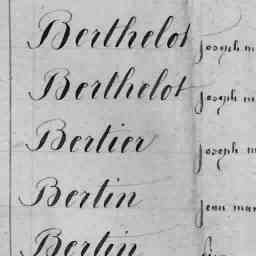 Berthelot joseph m
Berthelot joseph m
Bertier joseph m
Bertin jean mar
Bertin